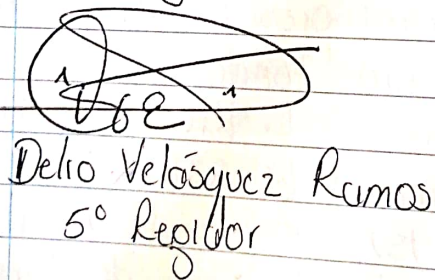 Delio Velásquez Ramos
5° Regidor